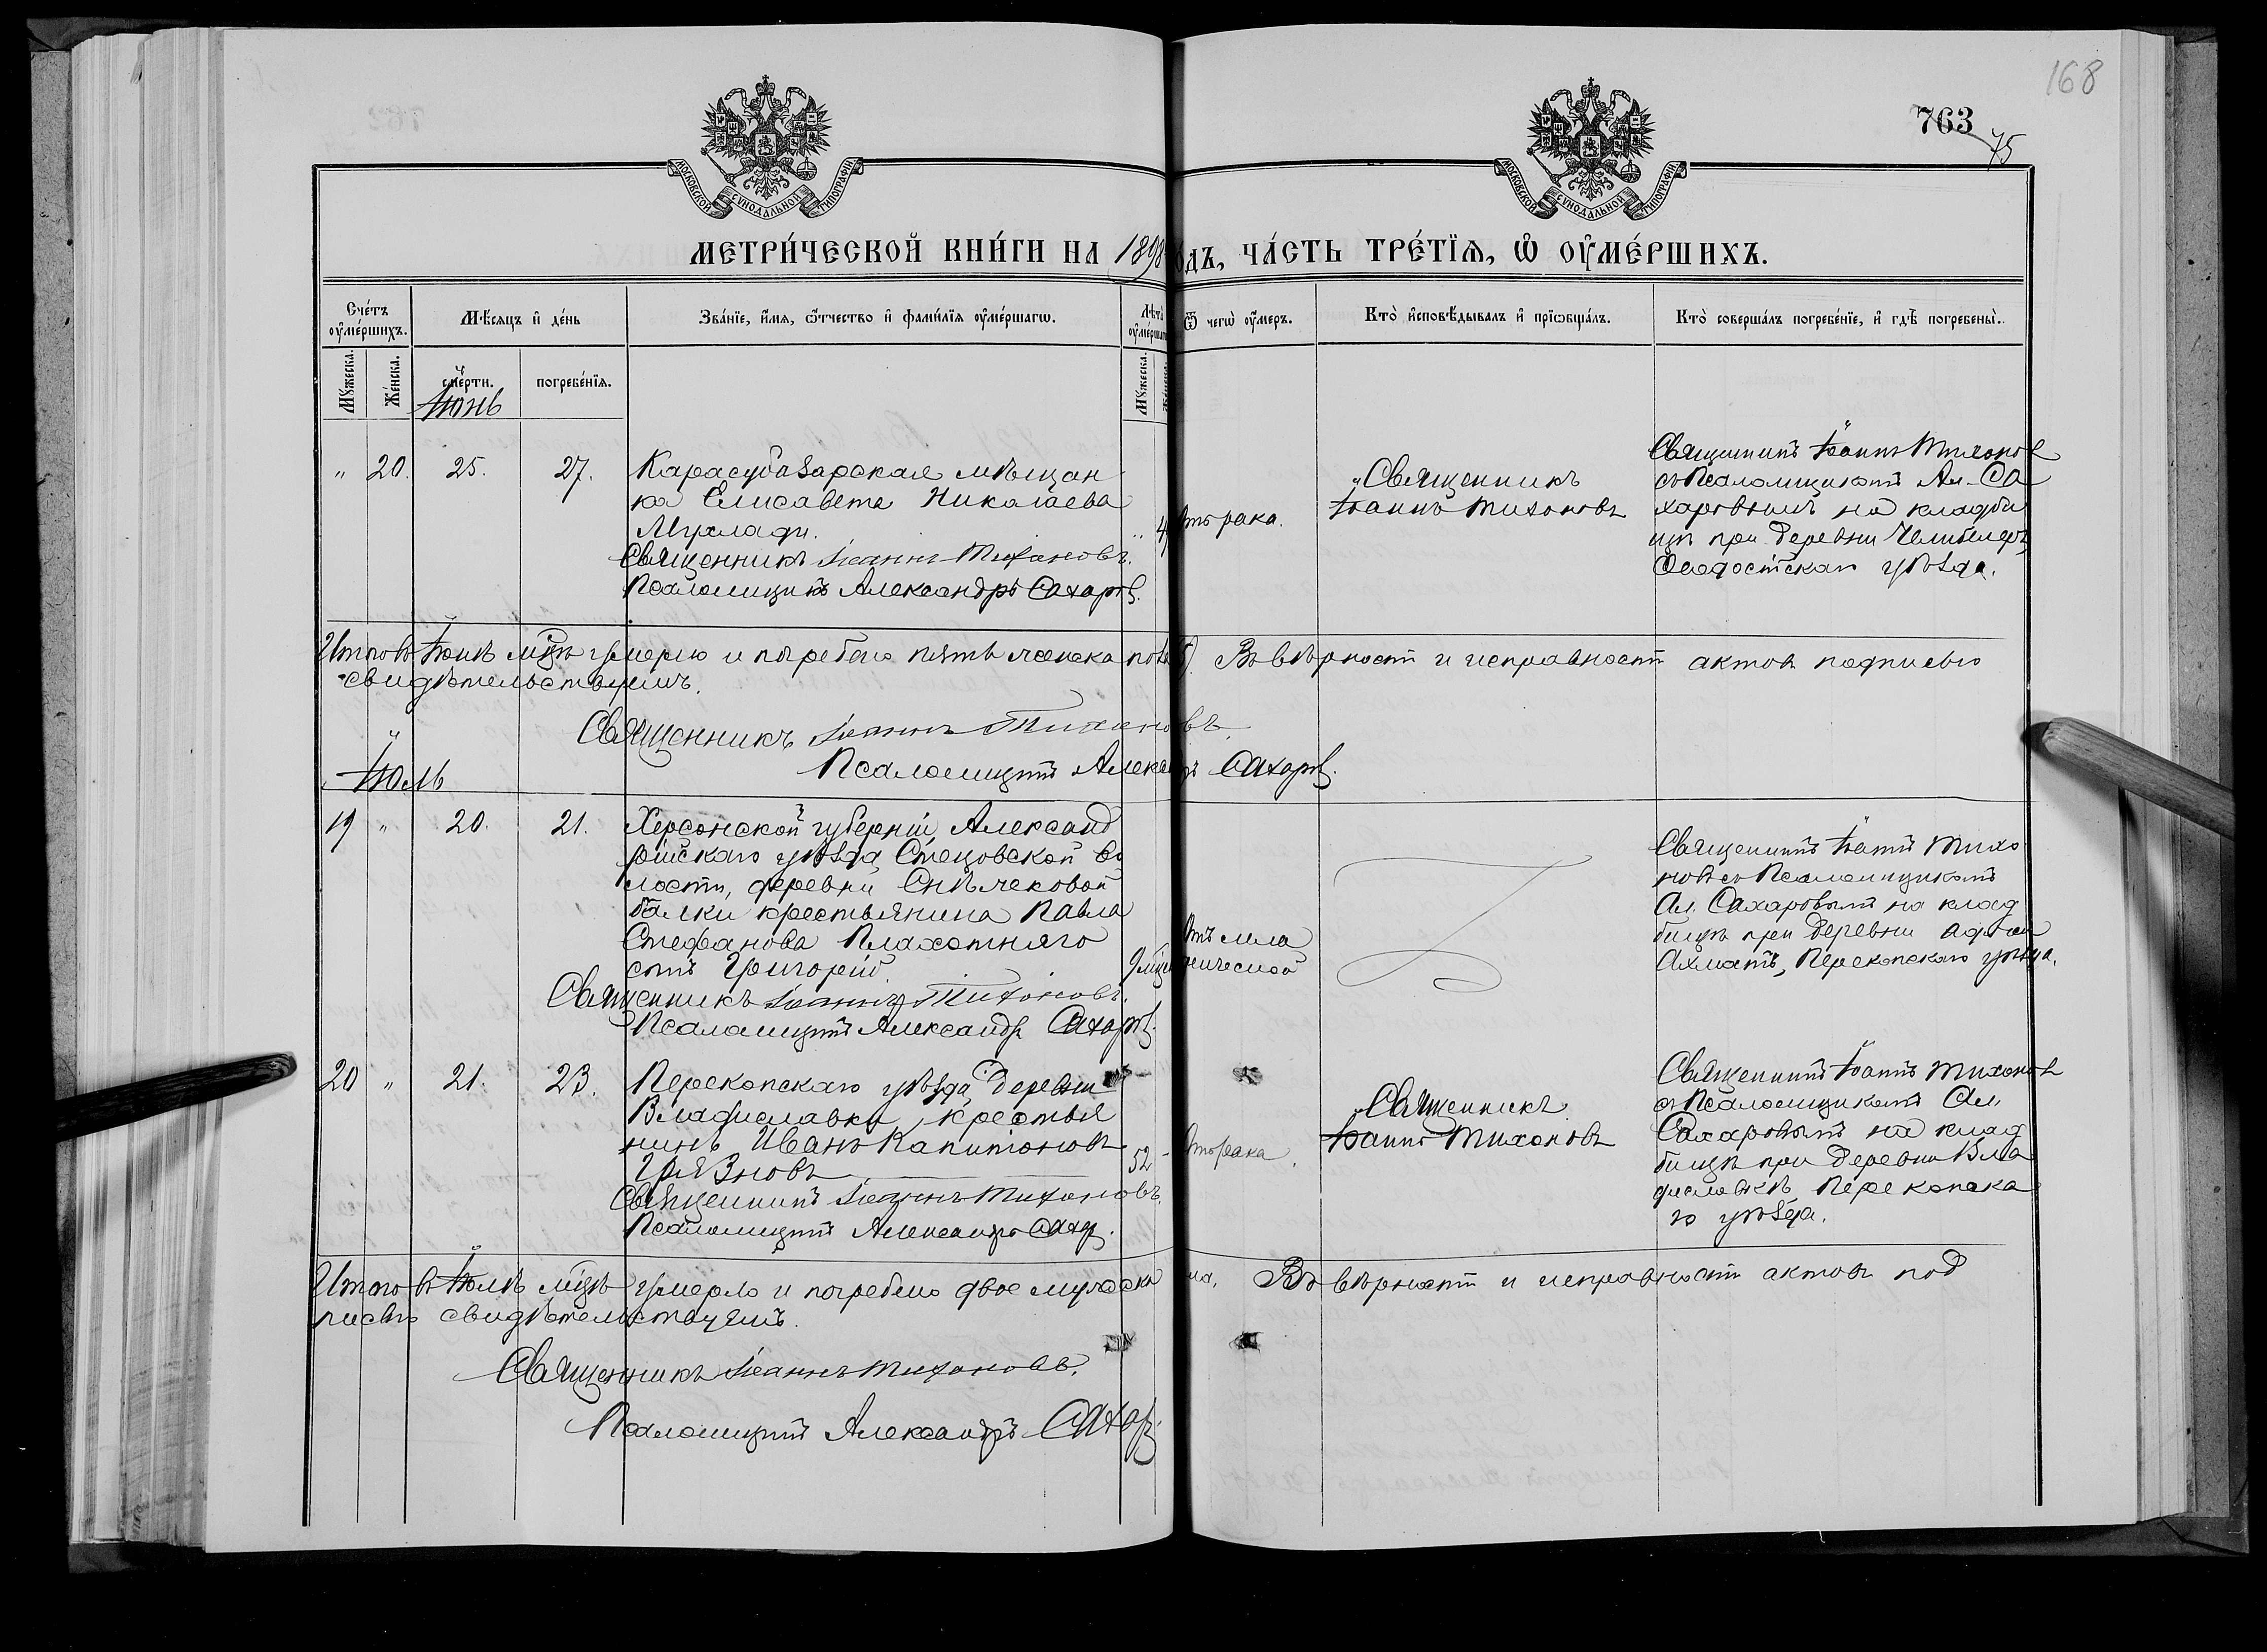 168
763
75
МОСКОВСКОЙ СѴНОДАЛЬНОЙ ТИПОГРАФІИ.
МОСКОВСКОЙ СѴНОДАЛЬНОЙ ТИПОГРАФІИ.
МЕТРИ́ЧЕСКОЙ КНИ́ГИ НА 1898 ОДЪ, ЧА́СТЬ ТРЕ́ТЇѦ, Ѡ ОУ҆МЕ́РШИХЪ.
Сче́тъ оу҆ме́ршихъ.
Мѣ́сяцъ и҆ де́нь
Зва́нїе, и҆́мя, ѿтчество и҆ фами́лїя оу҆ме́ршагѡ.
Лѣ́та оу҆ме́ршаг
Ѿ чегѡ̀ оу҆́меръ.
Кто̀ и҆сповѣ́дывалъ и҆ прїѡбща́лъ.
Кто̀ соверша́лъ погребе́нїе, и҆ гдѣ̀ погребены̀.
Мꙋ́жеска.
Же́нска.
сме́рти.
погребе́нїя.
Мꙋ́жеска.
Іюнь
" 20. 25. 27.
Карасубазарская мѣщан
ка Елисавета Николаева
Священникъ Іоаннъ Тихоновъ.
Псаломщикъ Александръ Сахаров.
" 4
отъ рака.
Священникъ
Іоаннъ Тихоновъ
Священникъ Іоаннъ Тихонов
съ Псаломщикомъ Ал. Са
харовымъ на кладби
щѣ при деревни
Ѳеодосійскаго уѣзда.
Итого въ Іюнѣ мцѣ умерло и погребено пять женска пола (5). Въ вѣрности и исправности актовъ подписью
свидѣтельствуемъ.
Священникъ Іоаннъ Тихоновъ.
Псаломщикъ Александръ Сахаров.
Іюль
19 " 20. 21.
Херсонской губерніи, Александ
рійскаго уѣзда Стецовской во
лости, деревни
балки крестьянина Павла
Стефанова Плахотняго
сынъ Григорій.
Священникъ Іоаннъ Тихоновъ.
Псаломщикъ Александръ Сахаров.
9 мцев
Отъ мла
денческой
Священникъ Іоаннъ Тихо
новъ съ Псаломщикомъ
Ал. Сахаровымъ на клад
бищѣ при деревни
Ахматъ, Перекопскаго уѣзда.
20 " 21. 23.
Перекопскаго уѣзда, деревни
Владиславки, крестья
нинъ Иванъ Капитоновъ
Грязновъ
Священникъ Іоаннъ Тихоновъ.
Псаломщикъ Александръ Сахар.
52 -
Отъ рака.
Священникъ
Іоаннъ Тихоновъ
Священникъ Іоаннъ Тихонов
съ Псаломщикомъ Ал.
Сахаровымъ на клад
бищѣ при деревни Вла
диславкѣ Перекопска
го уѣзда.
Итого въ Іюлѣ мцѣ умерло и погребено двое мужеска пола. Въ вѣрности и исправности актовъ под
писью свидѣтельствуемъ.
Священникъ Іоаннъ Тихоновъ.
Псаломщикъ Александръ Сахар.